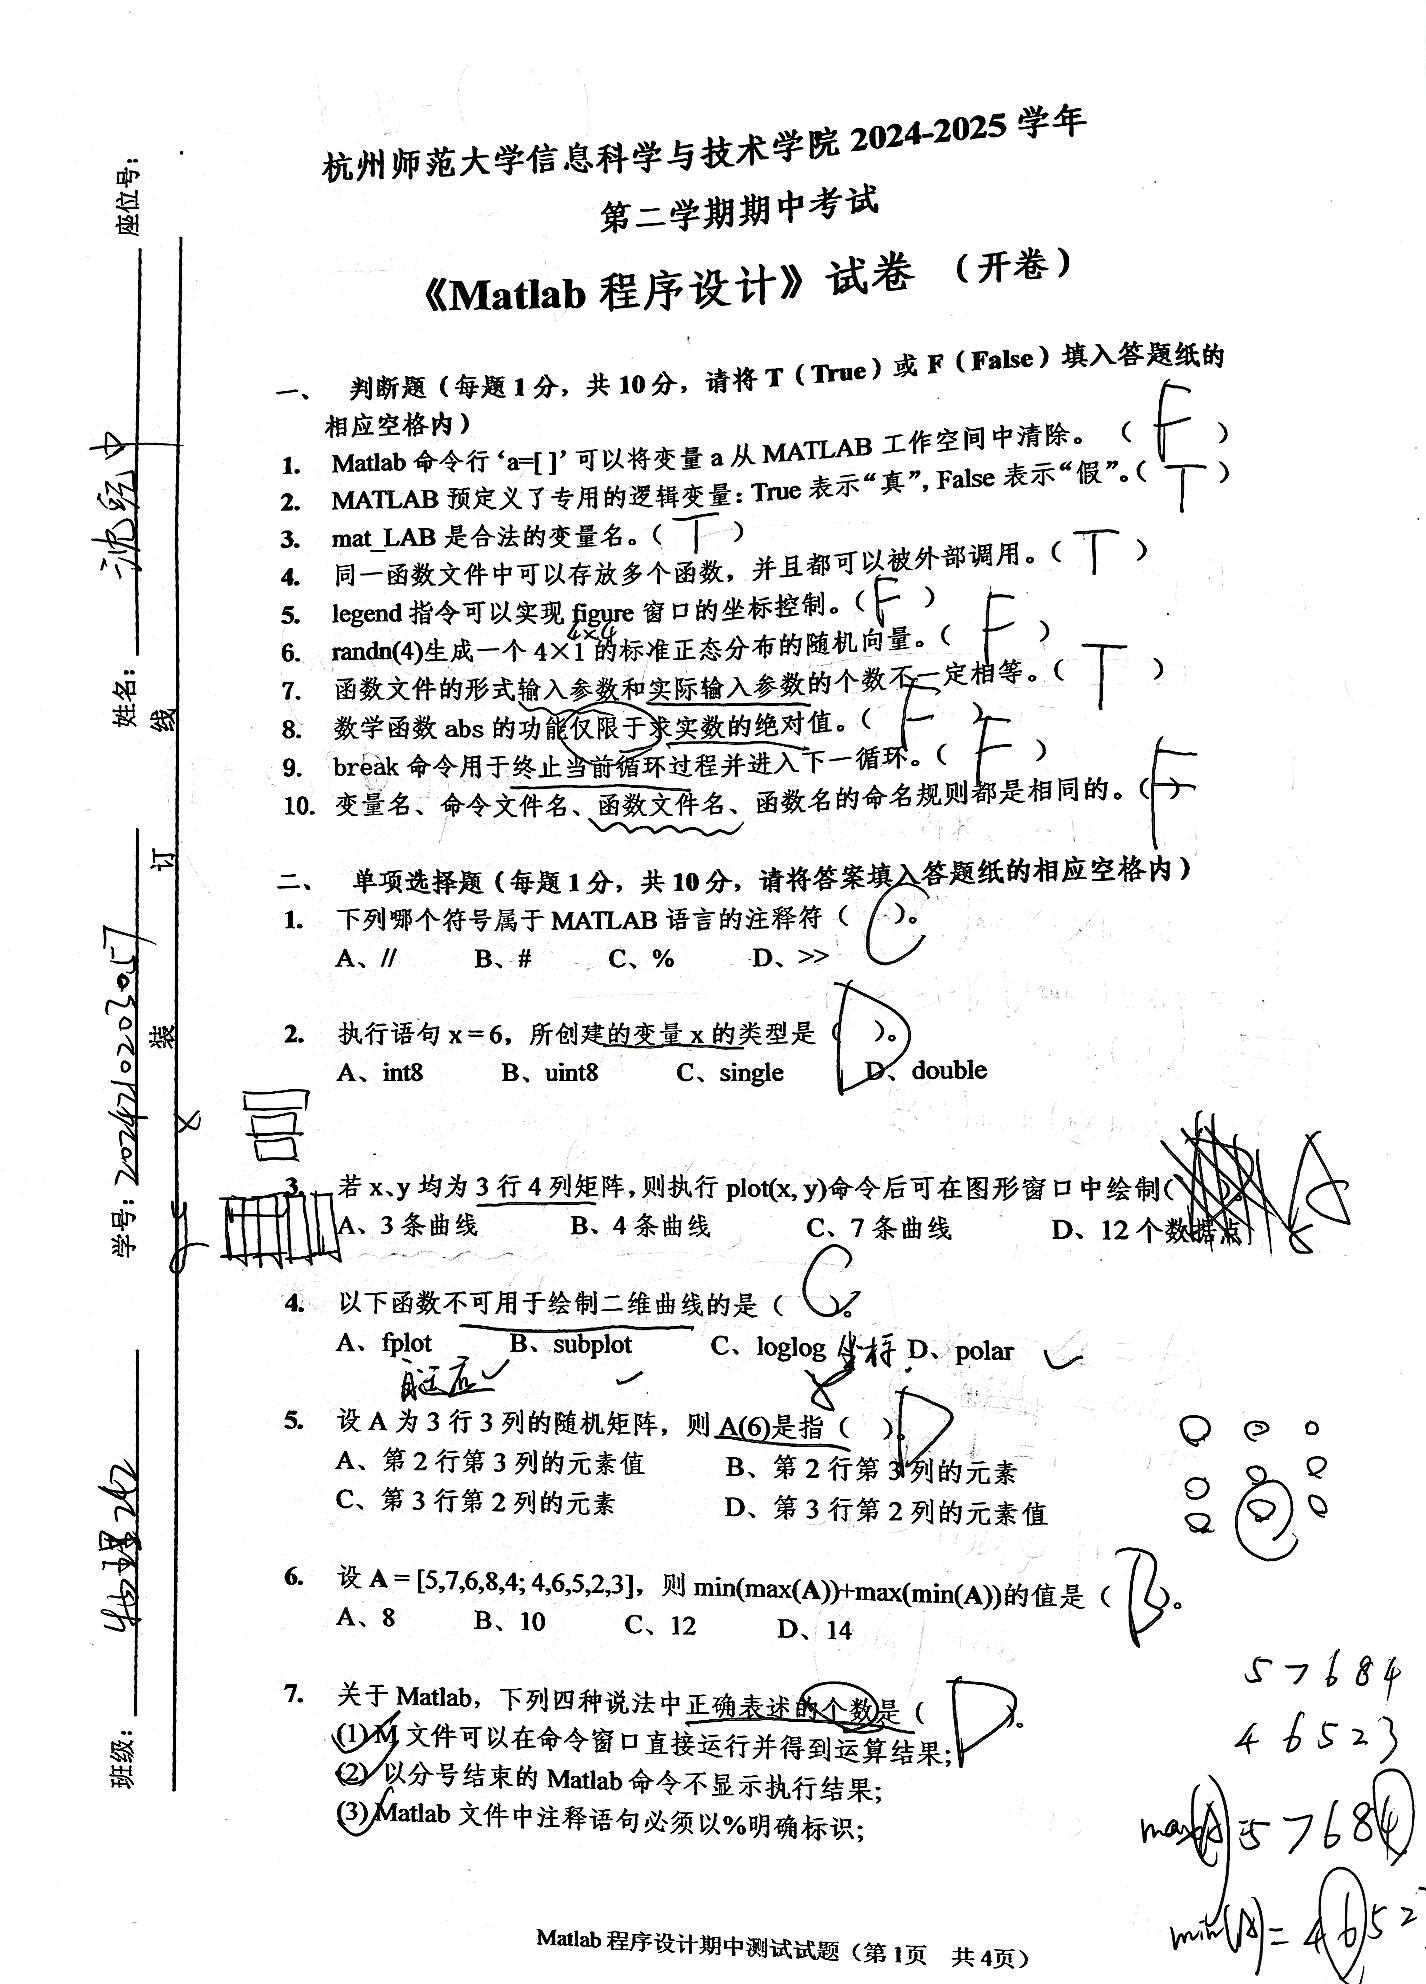 杭州师范大学信息科学与技术学院 2024-2025 学年
第二学期期中考试
《Matlab 程序设计》试卷 （开卷）
座位号：
姓名：
学号：2024210203057
班级：
线
订
装
一、 判断题（每题 1 分，共 10 分，请将 T（True）或 F（False）填入答题纸的
相应空格内）
1. Matlab 命令行 ‘a=[ ]’ 可以将变量 a 从 MATLAB 工作空间中清除。（ F ）
2. MATLAB 预定义了专用的逻辑变量：True 表示“真”，False 表示“假”。（ T ）
3. mat_LAB 是合法的变量名。（ T ）
4. 同一函数文件中可以存放多个函数，并且都可以被外部调用。（ T ）
5. legend 指令可以实现 figure 窗口的坐标控制。（ F ）
4×4
6. randn(4)生成一个 4×1 的标准正态分布的随机向量。（ F ）
7. 函数文件的形式输入参数和实际输入参数的个数不一定相等。（ T ）
8. 数学函数 abs 的功能仅限于求实数的绝对值。（ F ）
9. break 命令用于终止当前循环过程并进入下一循环。（ F ）
10. 变量名、命令文件名、函数文件名、函数名的命名规则都是相同的。（ F ）
二、 单项选择题（每题 1 分，共 10 分，请将答案填入答题纸的相应空格内）
1. 下列哪个符号属于 MATLAB 语言的注释符（ C ）。
A、// B、# C、% D、>>
2. 执行语句 x = 6，所创建的变量 x 的类型是（ D ）。
A、int8 B、uint8 C、single D、double
x
y
3. 若 x、y 均为 3 行 4 列矩阵，则执行 plot(x, y)命令后可在图形窗口中绘制（ ）。 A
A、3 条曲线 B、4 条曲线 C、7 条曲线 D、12 个数据点
4. 以下函数不可用于绘制二维曲线的是（ C ）。
A、fplot B、subplot C、loglog 坐标 D、polar
自适应
5. 设 A 为 3 行 3 列的随机矩阵，则 A(6)是指（ ）。 D
A、第 2 行第 3 列的元素值 B、第 2 行第 3 列的元素
C、第 3 行第 2 列的元素 D、第 3 行第 2 列的元素值
6. 设 A = [5,7,6,8,4; 4,6,5,2,3]，则 min(max(A))+max(min(A))的值是（ B ）。
A、8 B、10 C、12 D、14
5 7 6 8 4
4 6 5 2 3
max(A)=5 7 6 8 4
min(A)= 4 6 5 2
7. 关于 Matlab，下列四种说法中正确表述的个数是（ D ）。
(1) M 文件可以在命令窗口直接运行并得到运算结果;
(2) 以分号结束的 Matlab 命令不显示执行结果;
(3) Matlab 文件中注释语句必须以%明确标识;
Matlab 程序设计期中测试试题（第 1页 共 4页）